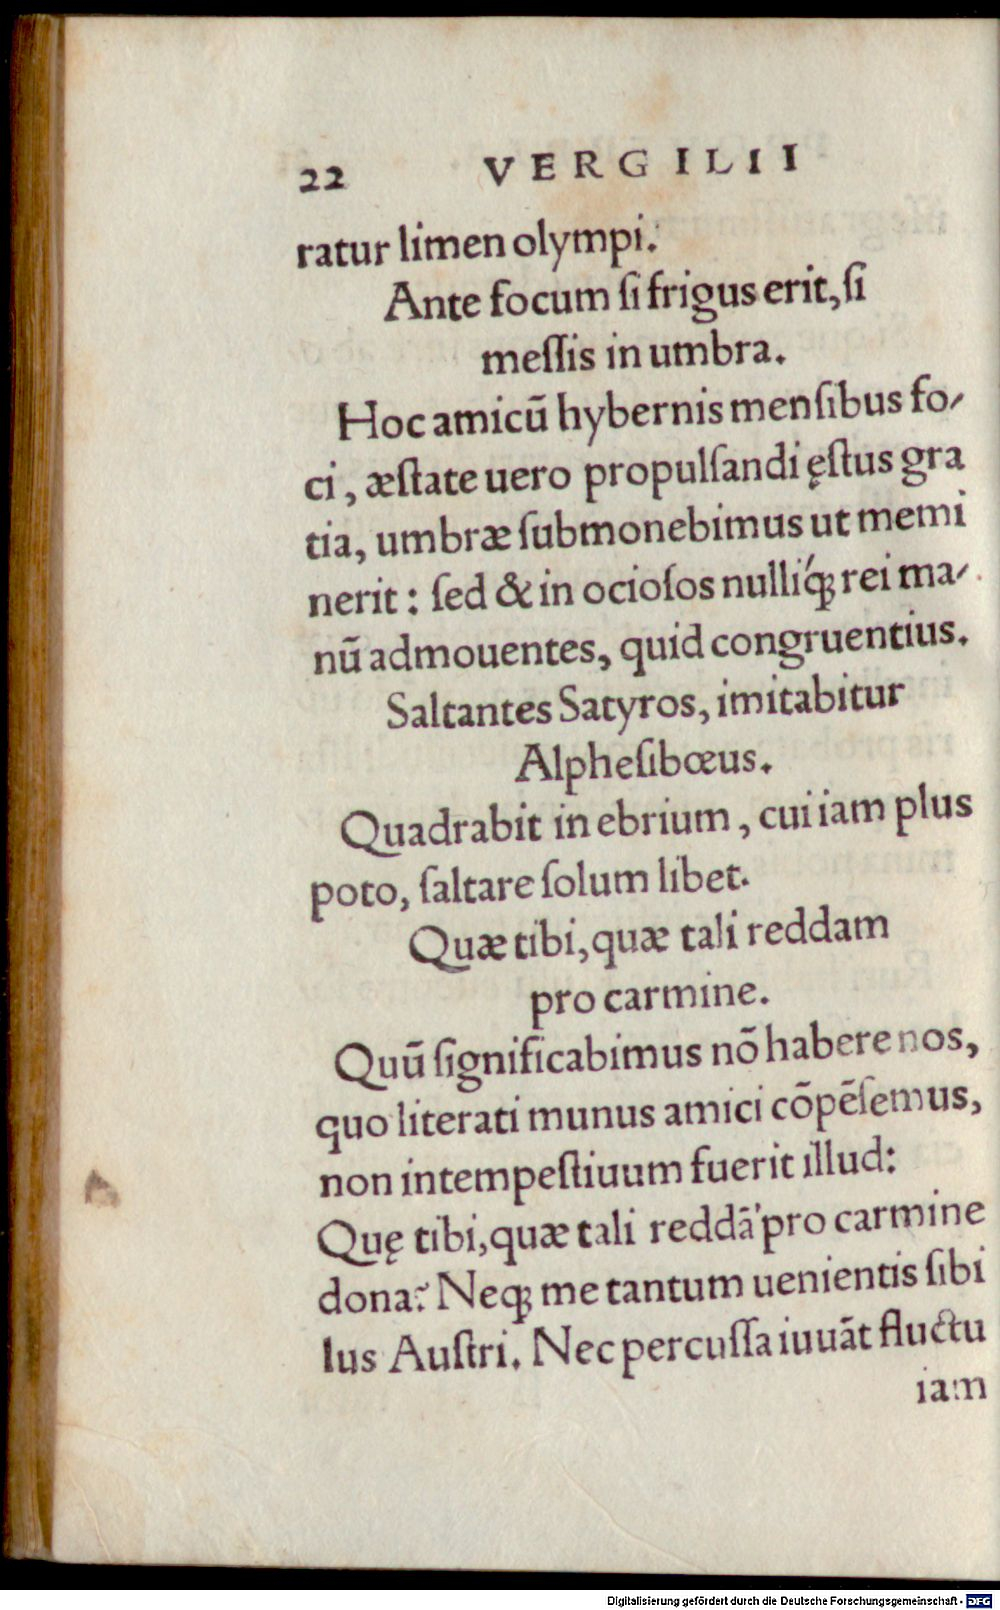 22 VERGILII
ratur limen olympi.
Ante focum ſi frigus erit, ſi
meſſis in umbra.
Hoc amicū hybernis menſibus fo⸗
ci, æſtate uero propulſandi ęſtus gra
tia, umbræ ſubmonebimus ut memi
nerit: ſed & in ocioſos nulliq́ꝫ rei ma⸗
nū admouentes, quid congruentius.
Saltantes Satyros, imitabitur
Alpheſibœus.
Quadrabit in ebrium, cui iam plus
poto, ſaltare ſolum libet.
Quæ tibi, quæ tali reddam
pro carmine.
Quū ſignificabimus nō habere nos,
quo literati munus amici cōpēſemus,
non intempeſtiuum fuerit illud:
Quę tibi, quæ tali reddā pro carmine
dona? Neqꝫ me tantum uenientis ſibi
lus Auſtri. Nec percuſſa iuuāt fluctu
iam
Digitalisierung gefördert durch die Deutsche Forschungsgemeinschaft - DFG